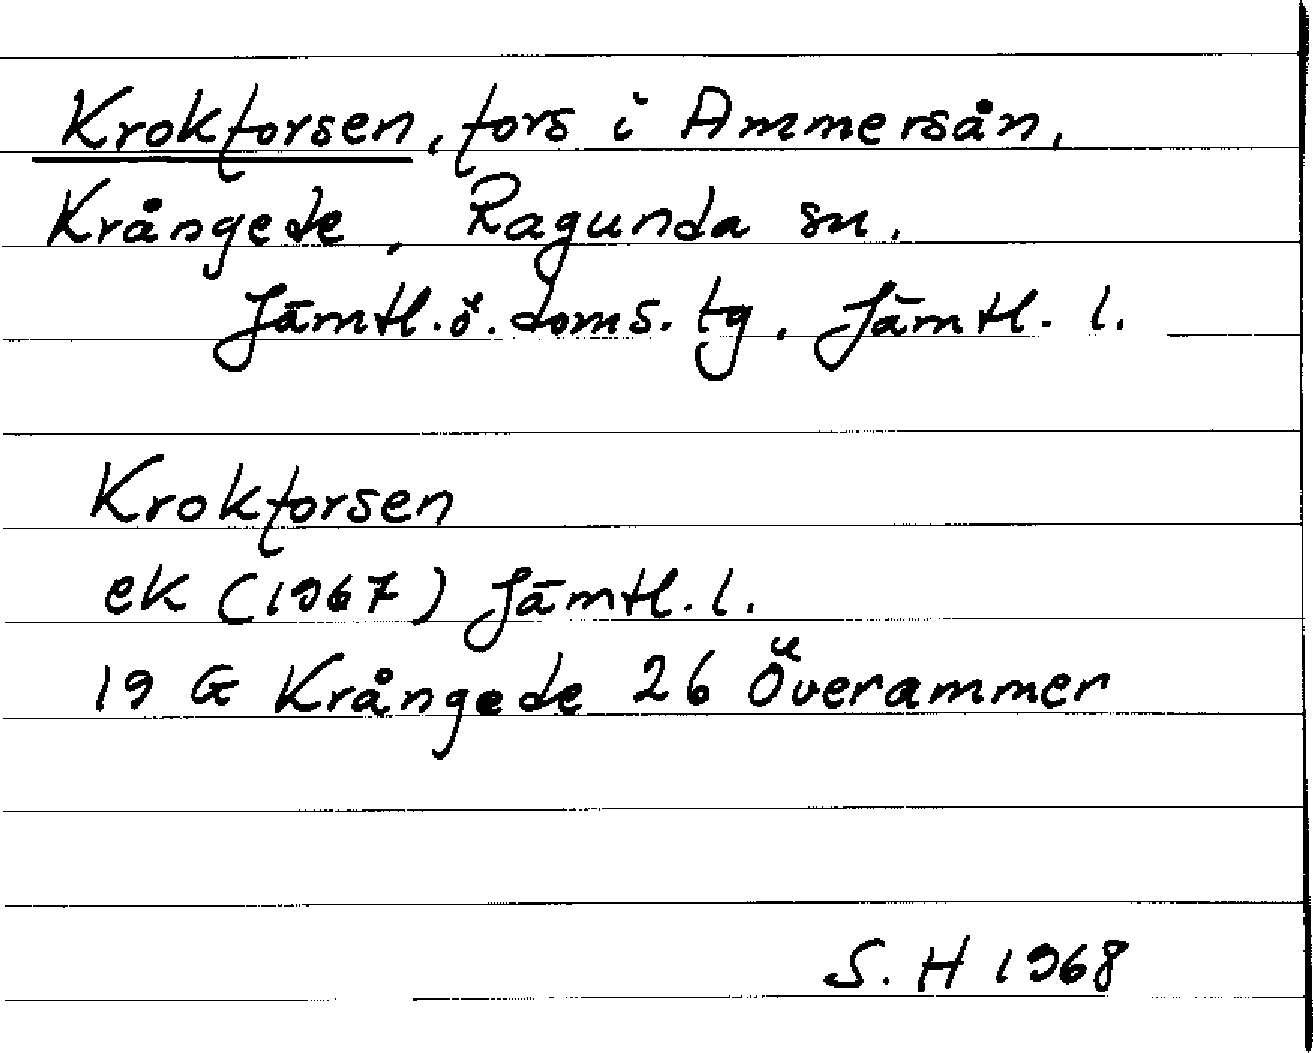 Krokforsen, fors i Ammersån,
Krångede, Ragunda sn.
Jämtl.ö. doms. tg. Jämtl. l.
Krokforsen
ek (1967) Jämtl. l.
19 G Krångede 26 Överammer
S. H 1968